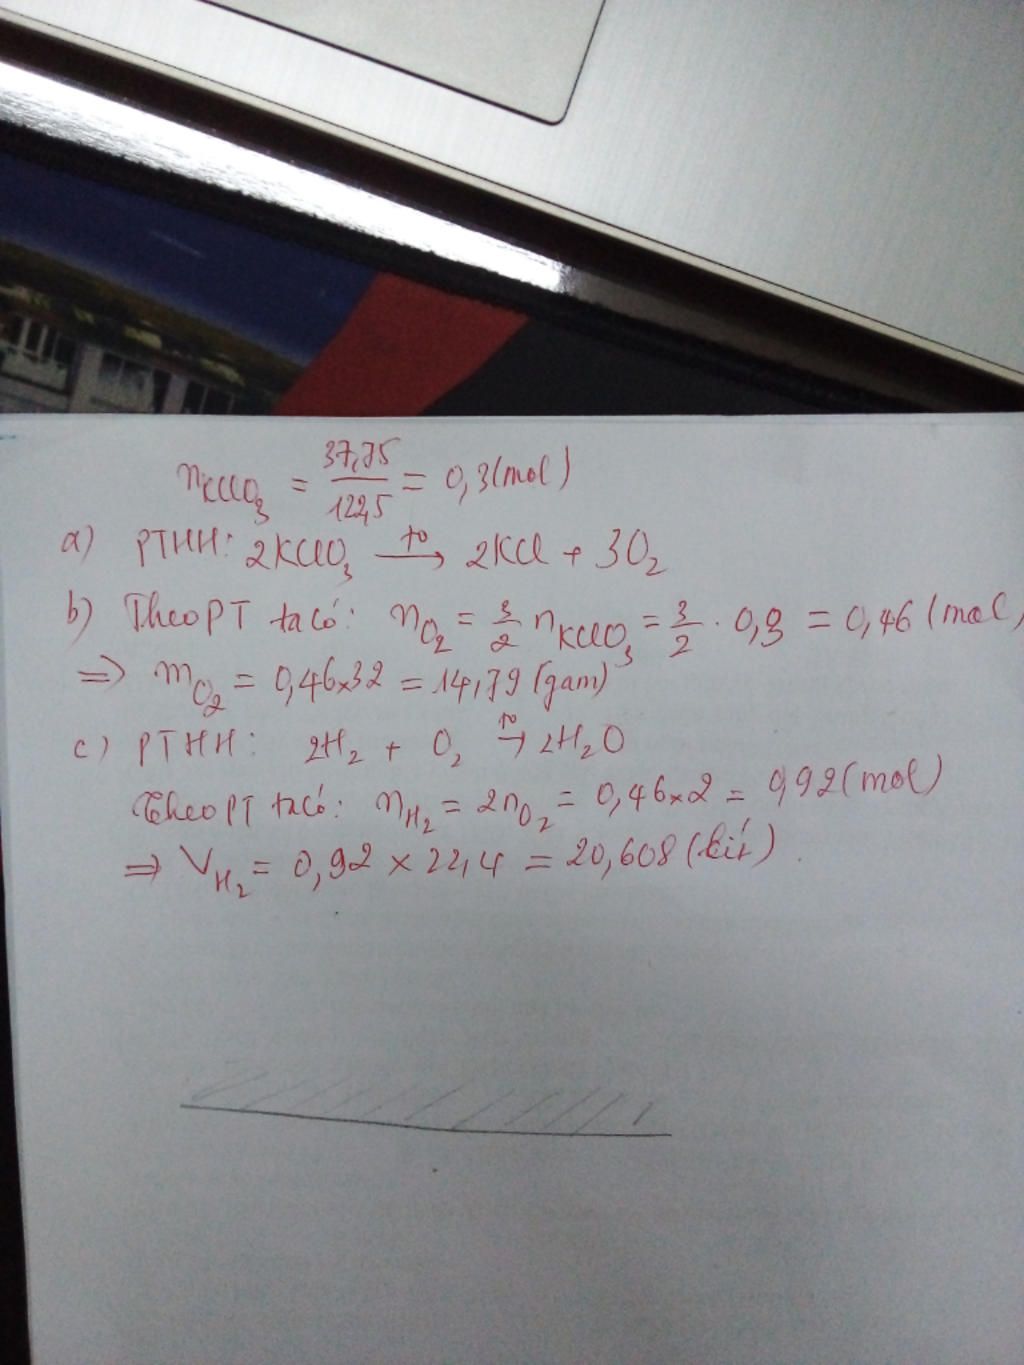 nKClO3 = 37,75/122,5 = 0,3 (mol)
a) PTHH: 2KClO3 —to→ 2KCl + 3O2
b) Theo PT ta có: nO2 = 3/2 nKClO3 = 3/2 . 0,3 = 0,46 (mol)
=> mO2 = 0,46x32 = 14,79 (gam)
c) PTHH: 2H2 + O2 —to→ 2H2O
Theo PT ta có: nH2 = 2nO2 = 0,46x2 = 0,92 (mol)
=> VH2 = 0,92 x 22,4 = 20,608 (lít).